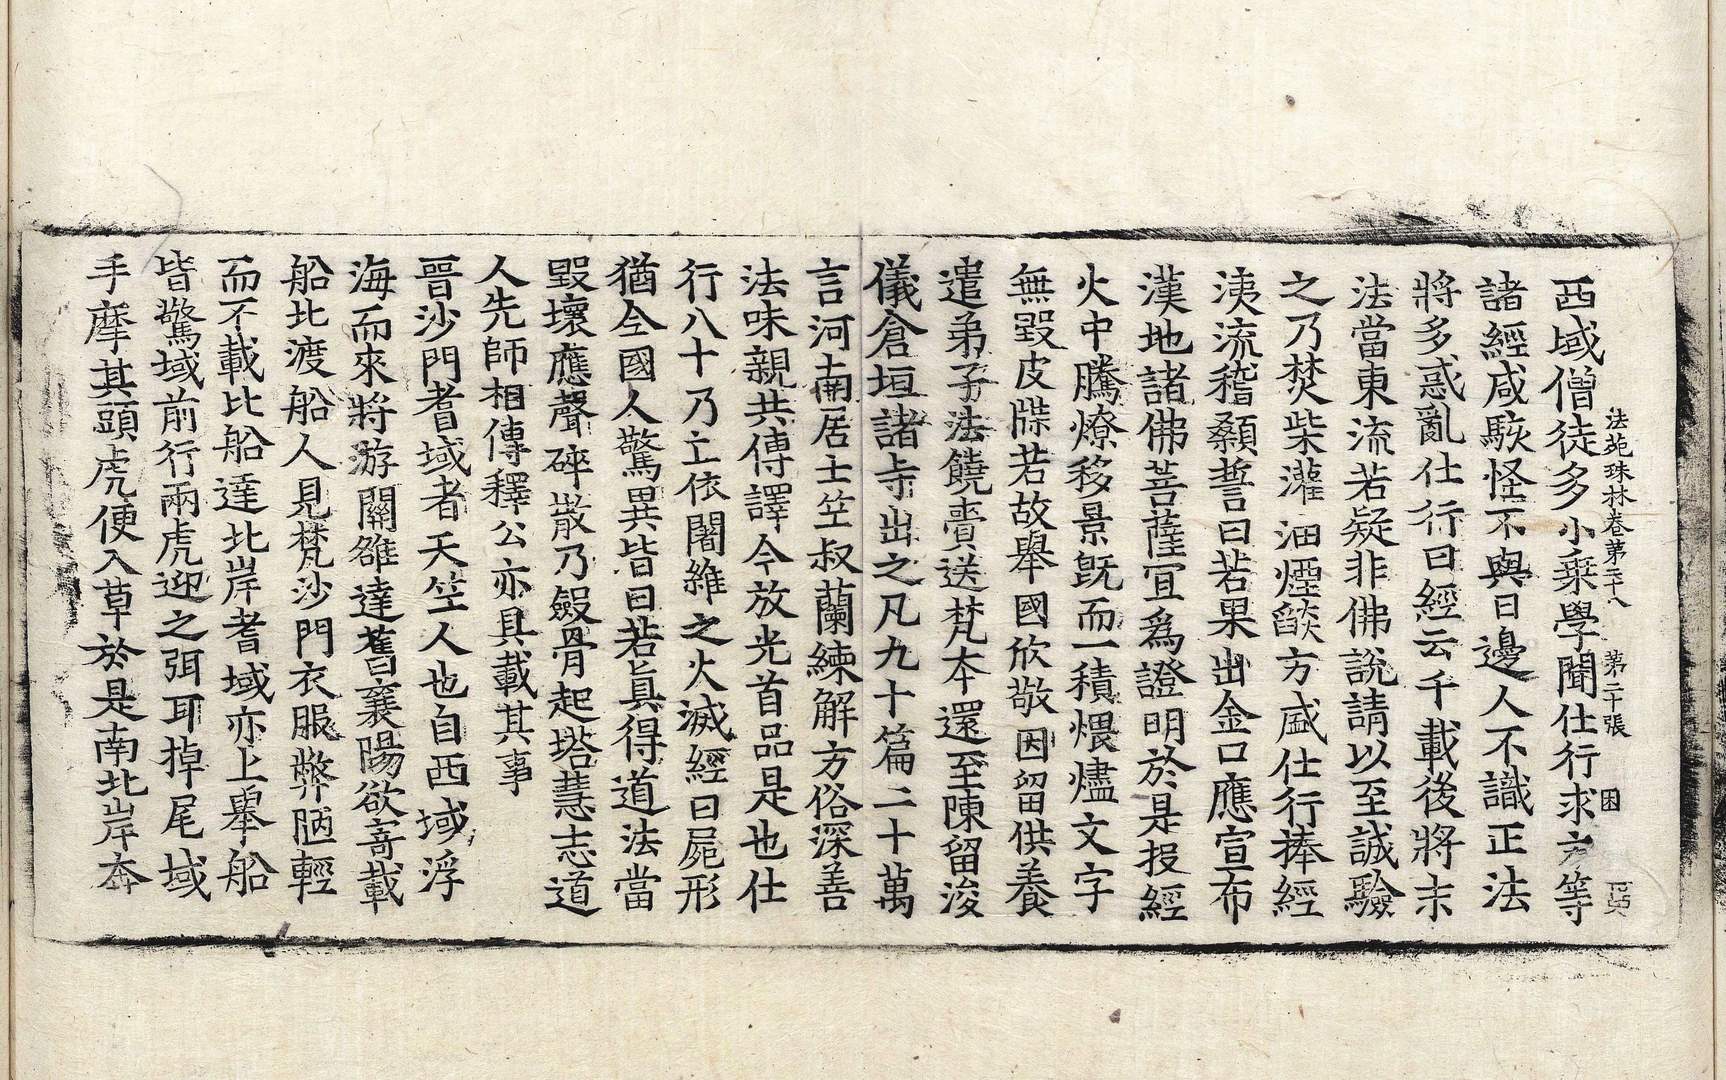 法苑珠林卷第二十八 第二十張 困
西域僧徒多小乗學聞仕行求方等
諸經咸駭怪不與曰邊人不識正法
將多惑亂仕行曰經云千載後將末
法當東流若疑非佛說請以至誠驗
之乃焚柴灌油煙𦦨方盛仕行捧經
洟流稽顙誓曰若果出金口應宣布
漢地諸佛菩薩宜爲證明於是投經
火中騰燎移景旣而一積煨燼文字
無毀皮牒若故舉國欣敬因留供養
遣弟子法饒賷送梵本還至陳留浚
儀倉垣諸寺出之凡九十篇二十萬
言河南居士竺叔蘭練解方俗深善
法味親共傳譯今放光首品是也仕
行八十乃亡依闍維之火滅經日屍形
猶全國人驚異皆曰若眞得道法當
毀壞應聲碎散乃斂骨起塔慧志道
人先師相傳釋公亦具載其事
晉沙門耆域者天竺人也自西域浮
海而來將游關雒達舊襄陽欲寄載
船比渡船人見梵沙門衣服弊陋輕
而不載比船達北岸耆域亦上舉船
皆驚域前行兩虎迎之弭耳掉尾域
手摩其頭虎便入草於是南北岸奔